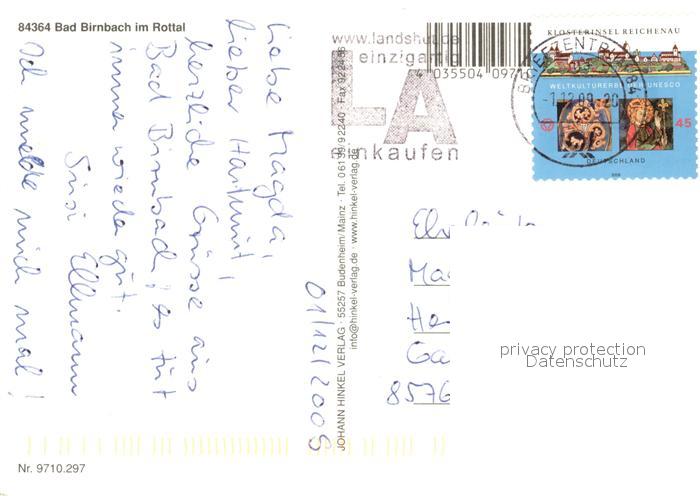 84364 Bad Birnbach im Rottal
Liebe Magda,
lieber Hartmut,
herzliche Grüsse aus
Bad Birnbach, es tut
immer wieder gut.
Susi Ellmann
Ich melde mich mal!
01/12/2009
JOHANN HINKEL VERLAG · 55257 Budenheim/Mainz · Tel. 06139/92240 · Fax 922486
info@hinkel-verlag.de · www.hinkel-verlag.de
www.landshut.de
einzigartig
LA
einkaufen
4 035504 0971
BRIEFZENTRUM 84
-1.12.09-20
KLOSTERINSEL REICHENAU
WELTKULTURERBE DER UNESCO
45
DEUTSCHLAND
2008
Ma
He
Ga
8576
privacy protection
Datenschutz
Nr. 9710.297